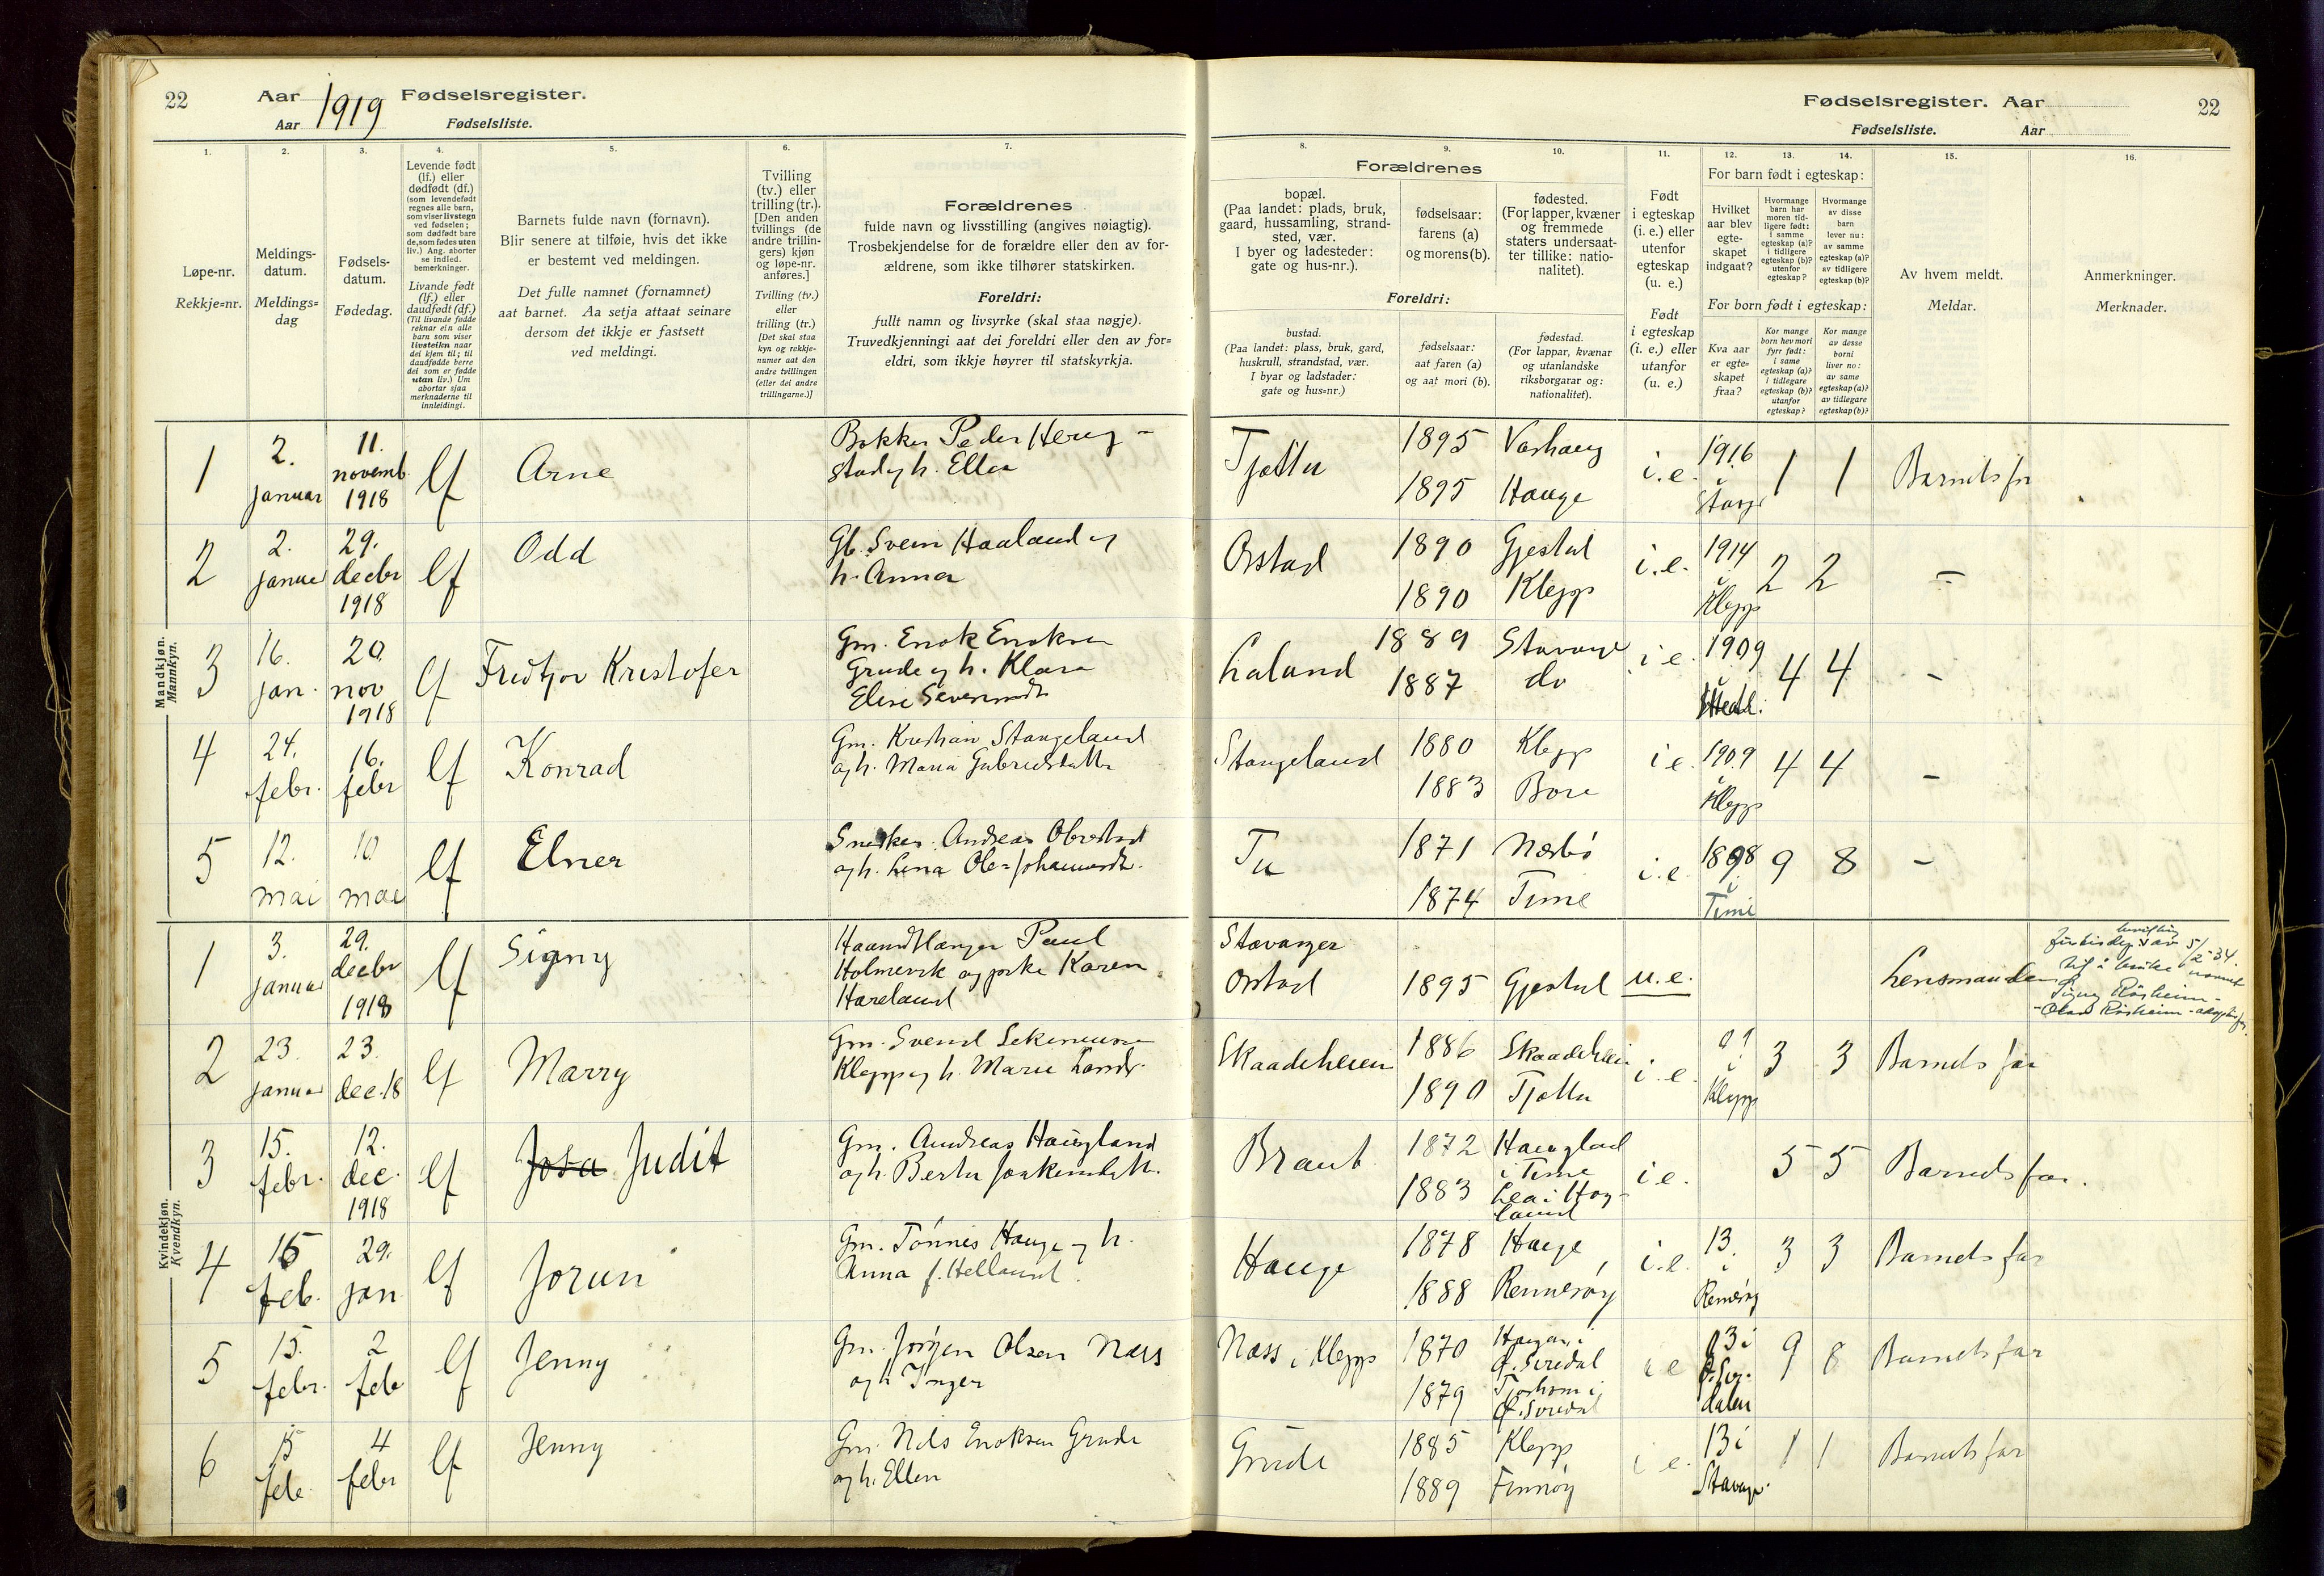 22 Aar 1919 Fødselsregister.
Aar Fødselsliste.
Fødselsregister. Aar 22
Fødselsliste. Aar
1. 2. 3. 4. 5. 6. 7. 8. 9. 10. 11. 12. 13. 14. 15. 16.
Løpe-nr.
Rekkje=nr.
Meldings-
datum.
Meldings=
dag
Fødsels-
datum.
Fødedag.
Levende født
(lf.) eller
dødfødt (df.)
(som levendefødt
regnes alle barn,
som viser livstegn
ved fødselen;
som dødfødt bare
de, som fødes uten
liv.) Ang. aborter
se indled.
bemerkninger.
Livande født
(lf.) eller
daudfødt (df.)
(Til livande fødde
reknar ein alle
barn som viser
livsteikn naar
dei kjem til; til
daudfødde berre
dei som er fødde
utan liv.) Um
abortar sjaa
merknaderne til
innleidingi.
Barnets fulde navn (fornavn).
Blir senere at tilføie, hvis det ikke
er bestemt ved meldingen.
Det fulle namnet (fornamnet)
aat barnet. Aa setja attaat seinare
dersom det ikkje er fastsett
ved meldingi.
Tvilling
(tv.) eller
trilling (tr.).
[Den anden
tvillings (de
andre trillin-
gers) kjøn
og løpe-nr.
anføres.]
Tvilling (tv.)
eller
trilling (tr.)
[Det skal staa
kyn og rekkje-
numer aat den
andre tvillingen
(eller dei andre
trillingarne.)]
Forældrenes
fulde navn og livsstilling (angives nøiagtig).
Trosbekjendelse for de forældre eller den av for-
ældrene, som ikke tilhører statskirken.
Foreldri:
fullt namn og livsyrke (skal staa nøgje).
Truvedkjenningi aat dei foreldri eller den av for=
eldri, som ikkje høyrer til statskyrkja.
Forældrenes
bopæl.
(Paa landet: plads, bruk,
gaard, hussamling, strand-
sted, vær.
I byer og ladesteder:
gate og hus-nr.).
fødselsaar:
farens (a)
og morens (b).
fødested.
(For lapper, kvæner
og fremmede
staters undersaat-
ter tillike: natio-
nalitet).
Foreldri:
bustad.
(Paa landet: plass, bruk, gard,
huskrull, strandstad, vær.
I byar og ladstader:
gate og hus=nr.)
fødselsaar:
aat faren (a)
og aat mori (b).
fødestad.
(For lappar, kvænar
og utanlandske
riksborgarar og:
nationalitet).
Født
i egteskap
(i. e.) eller
utenfor
egteskap
(u. e.)
Født
i egteskap
(i. e.) eller
utanfor
(u. e.)
For barn født i egteskap:
Hvilket
aar blev
egte-
skapet
indgaat?
Hvormange
barn har
moren tid-
ligere født:
i samme
egteskap (a)?
i tidligere
egteskap (b)?
utenfor
egteskap?
Hvormange
av disse
barn
lever nu:
av samme
egteskap (a)?
av tidligere
egteskap (b)?
For born født i egteskap:
Kva aar
er egte-
skapet
fraa?
Kor mange
born hev mori
fyrr født:
i same
egteskap (a)?
i tidlegare
egteskap (b)?
utanfor
egteskap?
Kor mange
av desse
borni
liver no:
av same
egteskap (a)?
av tidlegare
egteskap (b)?
Av hvem meldt.
Meldar.
Anmerkninger.
Merknader.
Mandkjøn.
Mannkyn.
1 2. januar 11. novemb. 1918 lf Arne
Peder
og h. Ellen
Tjøtta 1895 Varhaug i.e. 1916 1 1 Barnets far
1895 Hauge i Stavgr
2 2. januar 29. decbr 1918 lf Odd
Gb. Svein Haaland og
h. Anna
Orstad 1890 Gjestal i.e. 1914 2 2 -
1890 Klepp i Klepp
3 16. jan. 20 nov 1918 lf Fridtjov Kristofer
Gm. Enok Enoksen
Grude og h. Klara
Elise
Laland 1889 Stavange i e. 1909 4 4 -
1887 do
4 24. febr. 16. febr lf Konrad
Gm. Kristian Stangeland
og h. Maria Gabrielsdatter
Stangeland 1880 Klepp i e. 1909 4 4 -
1883 Bore i Klepp
5 12. mai 10 mai lf Elner
Snedker Andreas Obrestad
og h. Lena Ole=Johannesdt.
Tu 1871 Nærbø i.e. 1898 9 8 -
1874 Time i Time
Kvindekjøn.
Kvendkyn.
1 3. januar 29. decbr 1918 lf Signy
Haandtlanger Paul
Holmevik og pike Karen
Hareland
Stavanger
Orstad 1895 Gjestal u.e. Lensmanden
bevilling
av 5/2-34.
til å bruke navnet
Signy Risheim -
- Olav Risheim - adoptivfar.
2 23. januar 23. dec. 18 lf Marry
Gm. Svend
Klepp og h. Marie
Skaadeheien 1886 Skaadeheien i.e. 3 3 Barnets far
1890 Tjøtta i Klepp
3 15. febr. 12. dec. 1918 lf Josa Judit
Gm. Andreas Haugland
og h. Berta Joakimsdtr.
Braut 1872 Hauglad i e. 5 5 Barnets far.
i Time
1883 Lea i Høy-
land
4 15 feb. 29. jan lf Jorun
Gm. Tønnes Hauge og h.
Anna f. Helland.
Hauge 1878 Hauge i.e. 13. 3 3 Barnets far
1888 Rennesøy i Rennesøy
5 15. febr. 2 feb lf Jenny
Gm. Jørgen Olsen Næss
og h Inger
Næss i Klepp 1870 Haugan i i e 03 i 9 8 Barnets far
Ø. Siredal
1879 Tjørhom i
Ø. Siredal
6 15 feb. 4 febr lf Jenny
Gm. Nils Enoksen Grude
og h. Ellen
Grude 1885 Klepp i e. 13 i 1 1 Barnets far
1889 Finnøy Stavange.